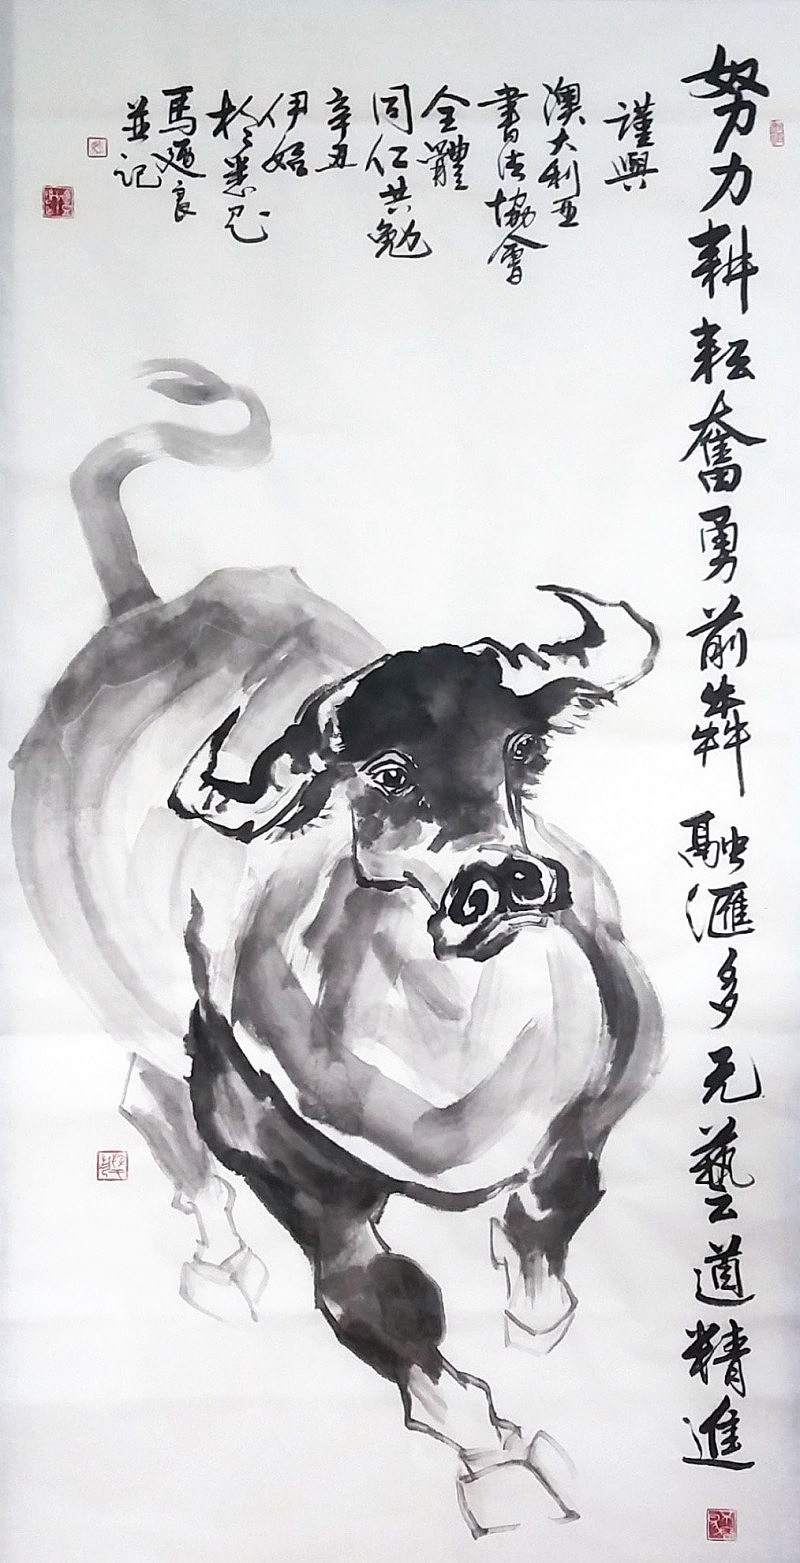 努力耕耘奮勇前犇 融滙多元藝道精進
謹與
澳大利亚
書法協會
全體
同仁共勉
辛丑
伊始
於悉尼
馬良
並記